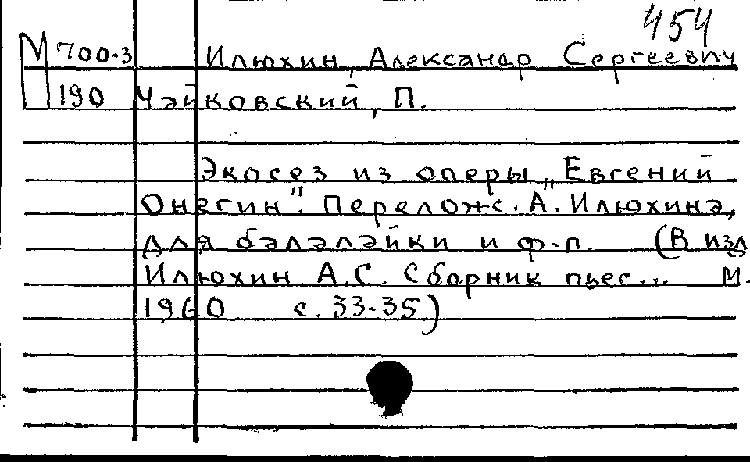 454
М 700-3 Илюхин, Александр Сергеевич
190 Чайковский, П.
Экосез из оперы „Евгений
Онегин". Перелож. А. Илюхина,
для балалайки и ф-п. (В изд
Илюхин А.С. Сборник пьес... М.
1960 с. 33-35)